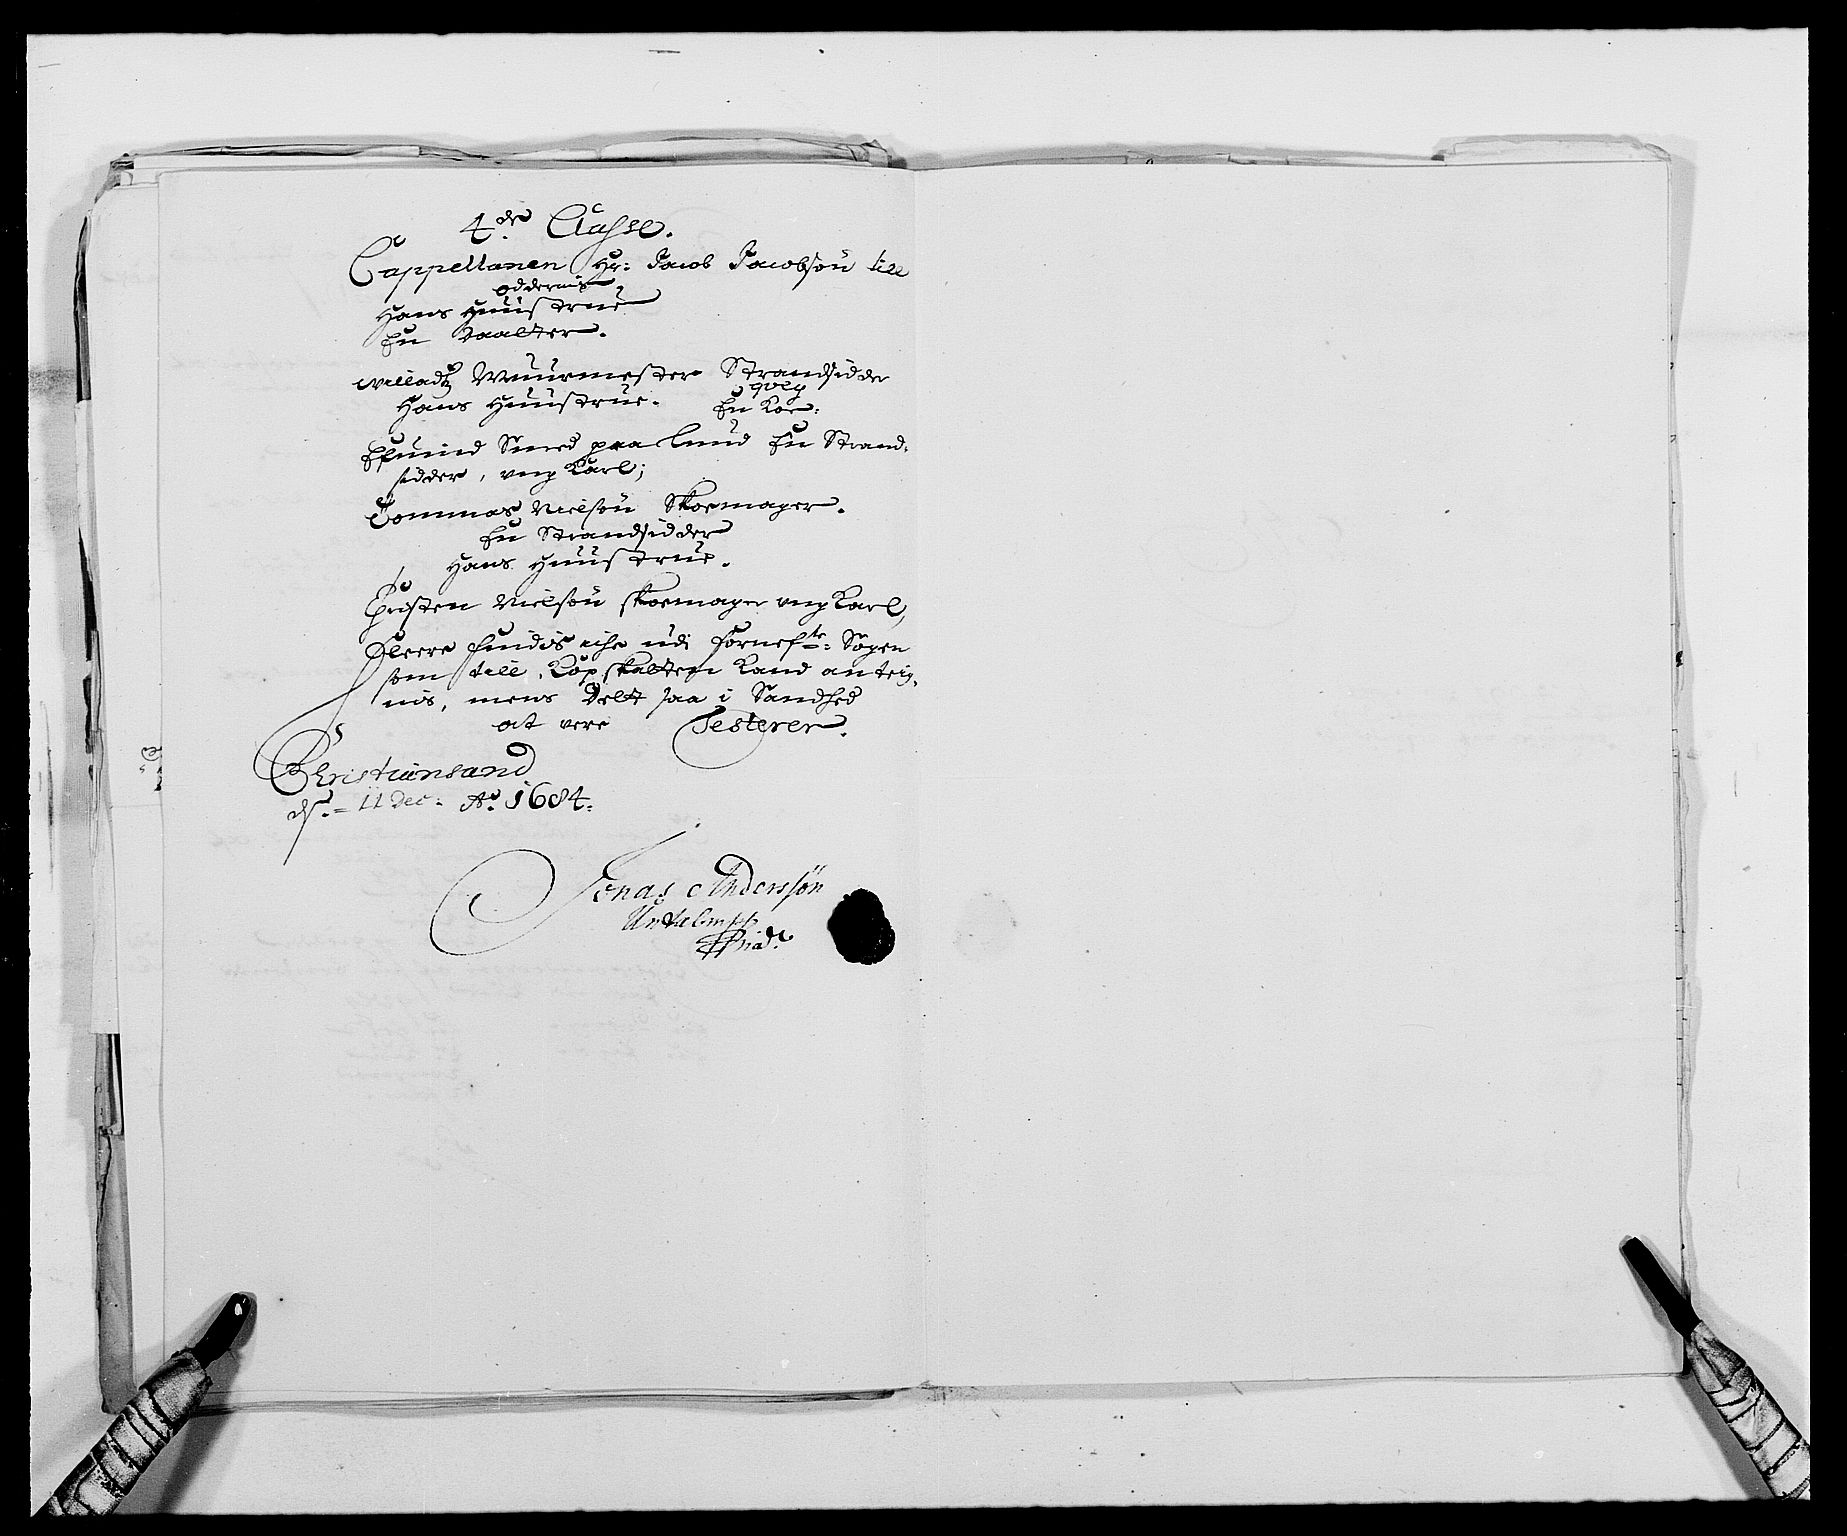 4de Classe.
Cappellanen Hr: Jacob Jacobsøn till
oddernis
Hans Huustrue
En Daatter.
Willadtz Muurmester Strandsidder
Hans Huustrue. En Koe:
qveg
Efuind Smed paa Lund En Strand-
sidder, ung Karl;
Tommas Nielsøn Skoemager.
En Strandsidder
Hans Huustrue.
Christen Nielsøn skoemager ung Karl,
Fleere findis iche udi forneffte: Sogen
som till Kopskatten Kand anteig-
nis, mens Dett saa i Sandhed
at vere Testerer.
Christiansand
ds: 11 Dec: Ao 1684.
Jonas Anderssøn